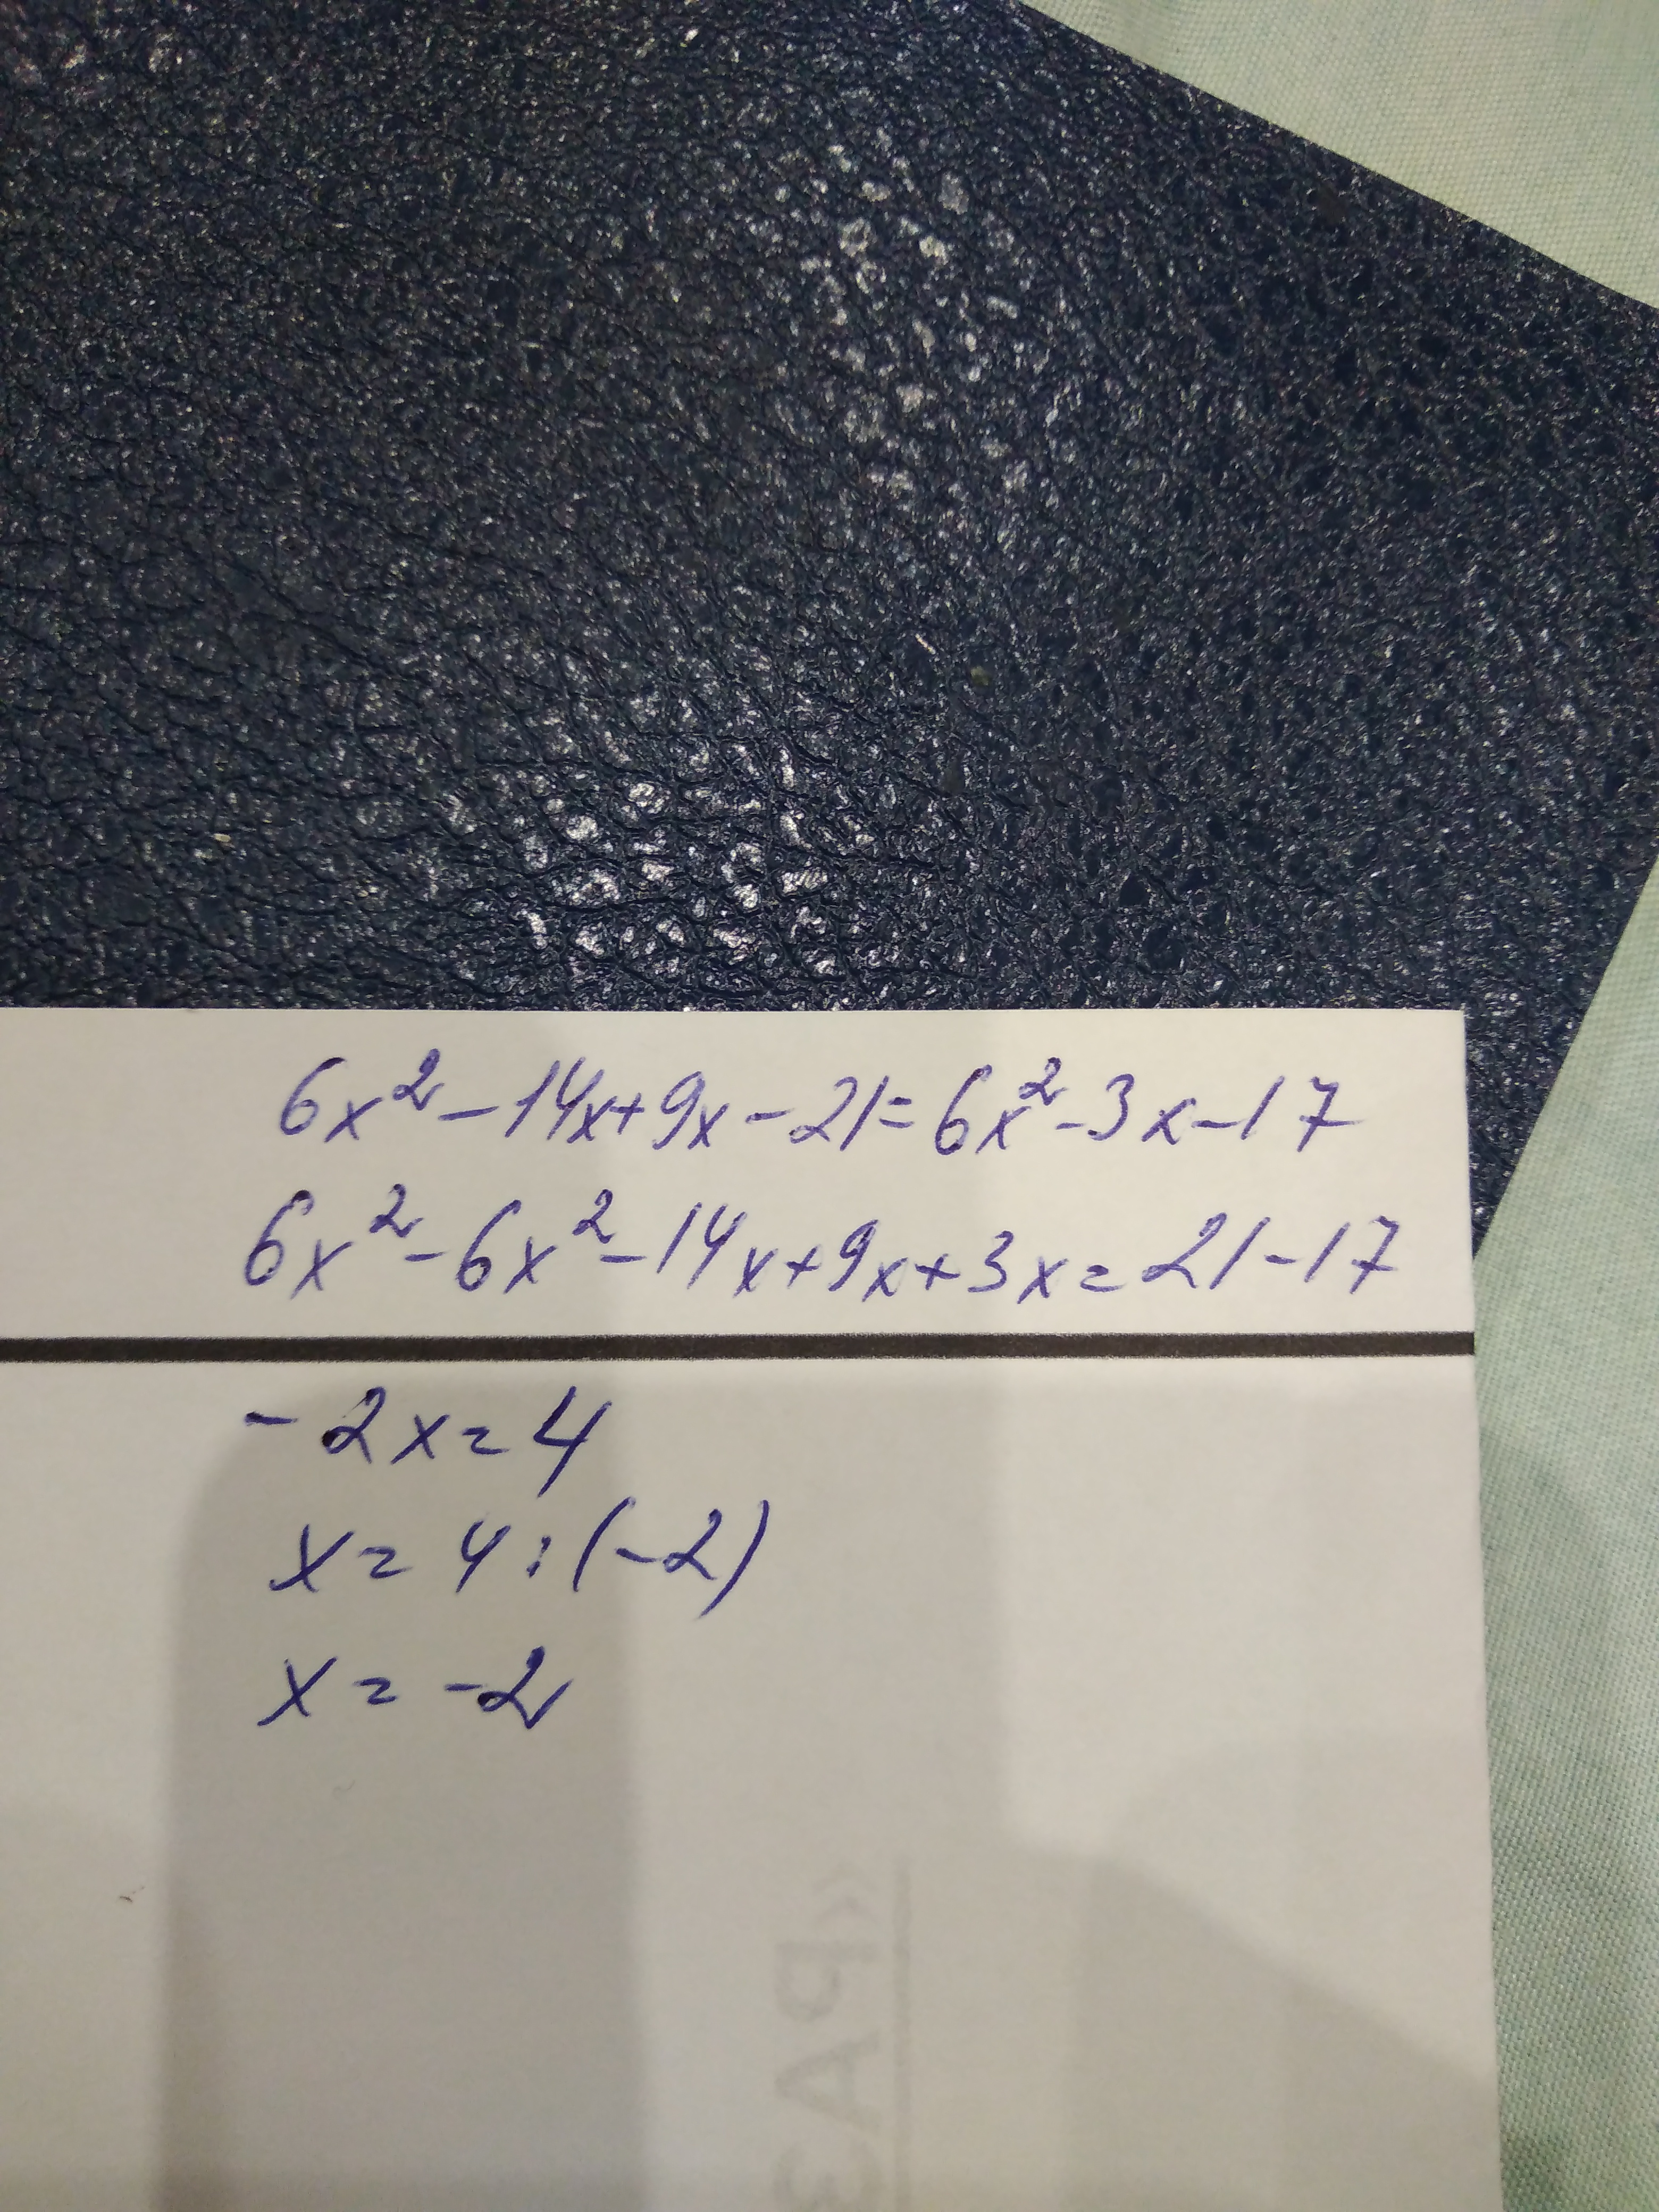 6x² - 14x + 9x - 21 = 6x² - 3x - 17
6x² - 6x² - 14x + 9x + 3x = 21 - 17
- 2x = 4
x = 4 : (-2)
x = -2